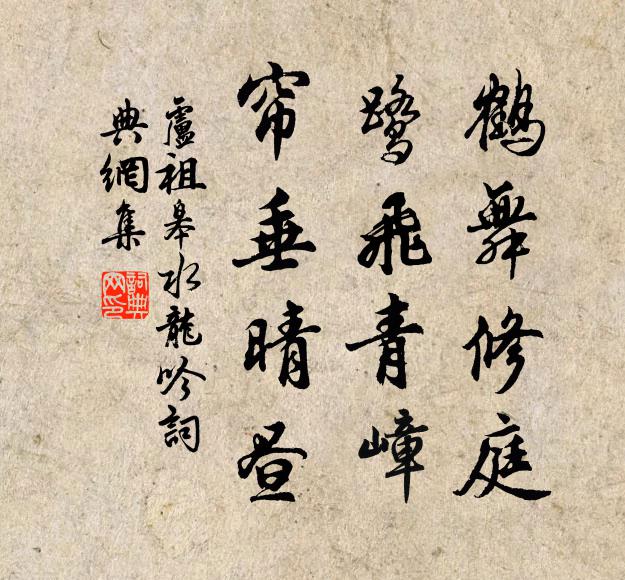 鶴舞修庭
鷺飛青嶂
帘垂晴昼
盧祖皋水龍吟詞
典網集
詞典網印